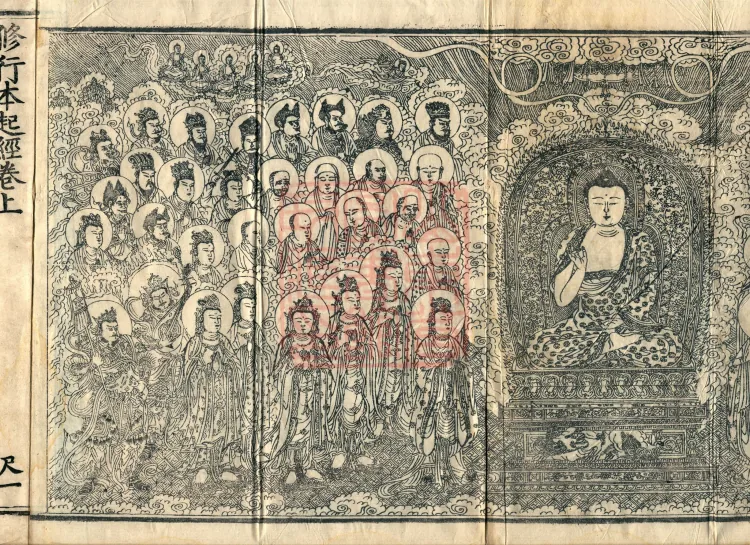 修行本起經卷上
尺一